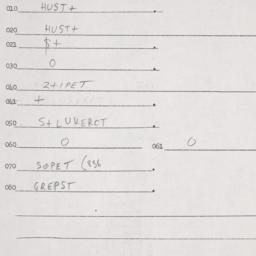 010 HUST+
020 HUST+
021 $+
030 0
040 2+1PET
041 +
050 S+LUVERCT
060 0 061 0
070 SOPET (896
080 GREPST